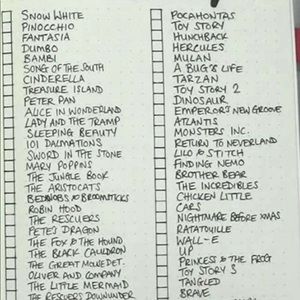 SNOW WHITE
PINOCCHIO
FANTASIA
DUMBO
BAMBI
SONG OF THE SOUTH
CINDERELLA
TREASURE ISLAND
PETER PAN
ALICE IN WONDERLAND
LADY AND THE TRAMP
SLEEPING BEAUTY
101 DALMATIONS
SWORD IN THE STONE
MARY POPPINS
THE JUNGLE BOOK
THE ARISTOCATS
BEDNOBS & BROOMSTICKS
ROBIN HOOD
THE RESCUERS
PETE'S DRAGON
THE FOX & THE HOUND
THE BLACK CAULDRON
THE GREAT MOUSE DET.
OLIVER AND COMPANY
THE LITTLE MERMAID
THE RESCUERS DOWNUNDER
POCAHONTAS
TOY STORY
HUNCHBACK
HERCULES
MULAN
A BUG'S LIFE
TARZAN
TOY STORY 2
DINOSAUR
EMPEROR'S NEW GROOVE
ATLANTIS
MONSTERS INC.
RETURN TO NEVERLAND
LILO & STITCH
FINDING NEMO
BROTHER BEAR
THE INCREDIBLES
CHICKEN LITTLE
CARS
NIGHTMARE BEFORE XMAS
RATATOUILLE
WALL-E
UP
PRINCESS & THE FROG
TOY STORY 3
TANGLED
BRAVE